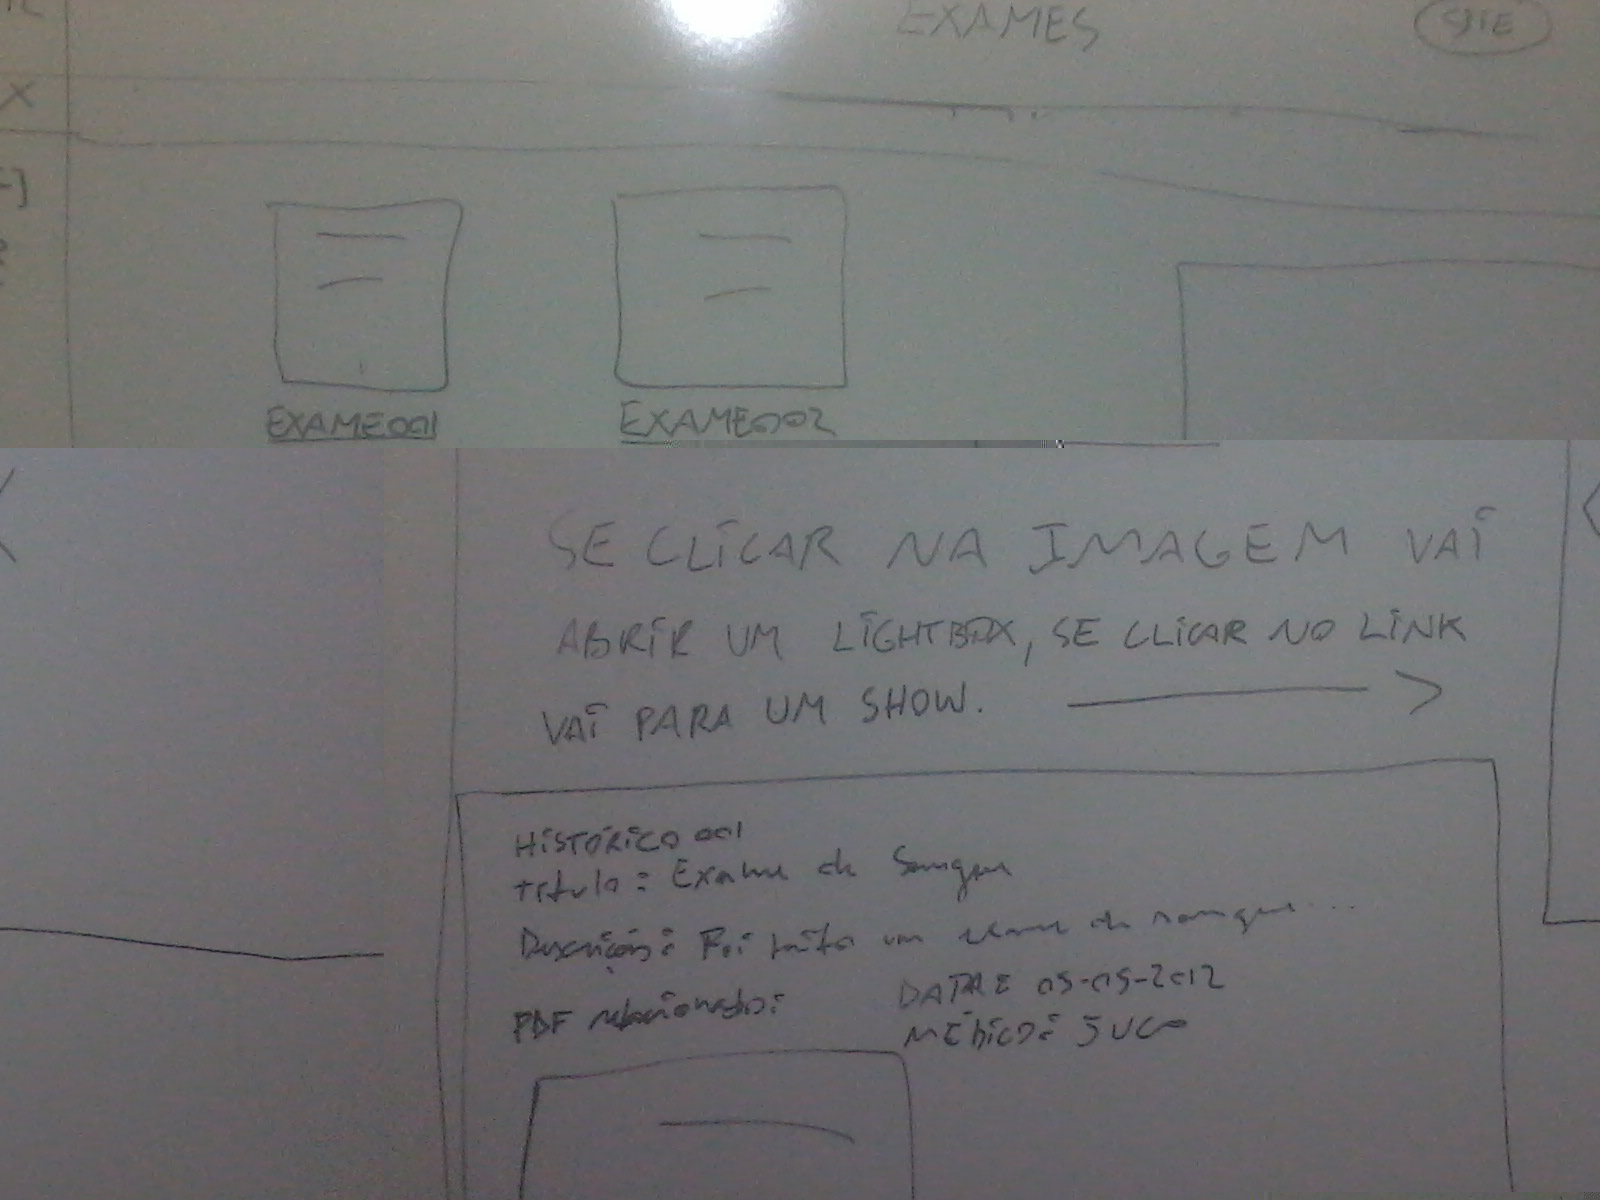 EXAMES
X
EXAME001
EXAME002
SE CLICAR NA IMAGEM VAI
ABRIR UM LIGHTBOX, SE CLICAR NO LINK
VAI PARA UM SHOW.
HISTÓRICO 001
título: Exame de Sangue
Descrição: Foi feito um exame de sangue...
PDF relacionado:
05-05-2012
MÉDICO: